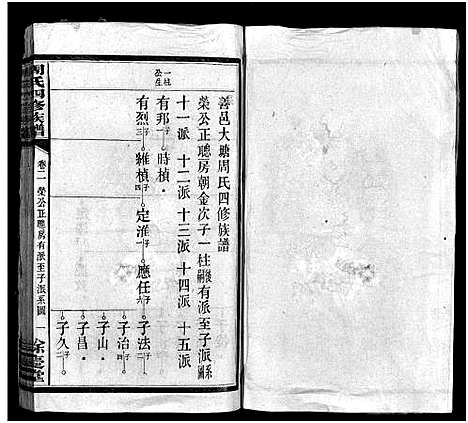 善邑大塘周氏四修族譜
榮公正聰房朝金次子一柱後嗣有派至子派系圖
十一派 十二派 十三派 十四派 十五派
一柱公生
有邦子一 時楨
有烈子三 雒楨子四 定淮子一 應任子六 子法子一
子治子四
子山
子昌子
子久子
周氏四修族譜
卷二 榮公正聰房有派至子派系圖 一